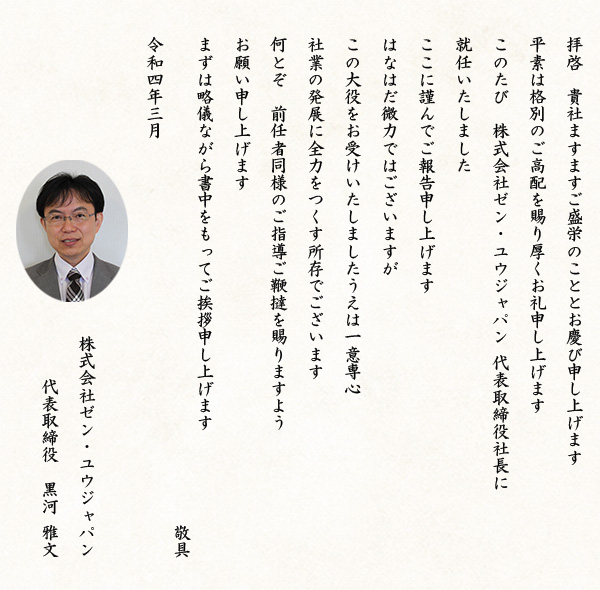 拝啓　貴社ますますご盛栄のこととお慶び申し上げます
平素は格別のご高配を賜り厚くお礼申し上げます
このたび　株式会社ゼン・ユウジャパン 代表取締役社長に
就任いたしました
ここに謹んでご報告申し上げます
はなはだ微力ではございますが
この大役をお受けいたしましたうえは一意専心
社業の発展に全力をつくす所存でございます
何とぞ　前任者同様のご指導ご鞭撻を賜りますよう
お願い申し上げます
まずは略儀ながら書中をもってご挨拶申し上げます
敬具
令和四年三月
株式会社ゼン・ユウジャパン
代表取締役　黒河 雅文